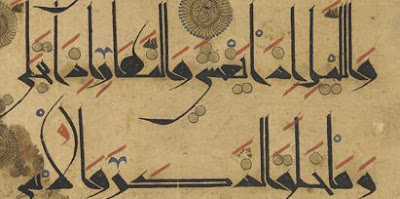 وَاللَّيْلِ إِذَا يَغْشَىٰ وَالنَّهَارِ إِذَا تَجَلَّىٰ
وَمَا خَلَقَ الذَّكَرَ وَالْأُنْثَىٰ